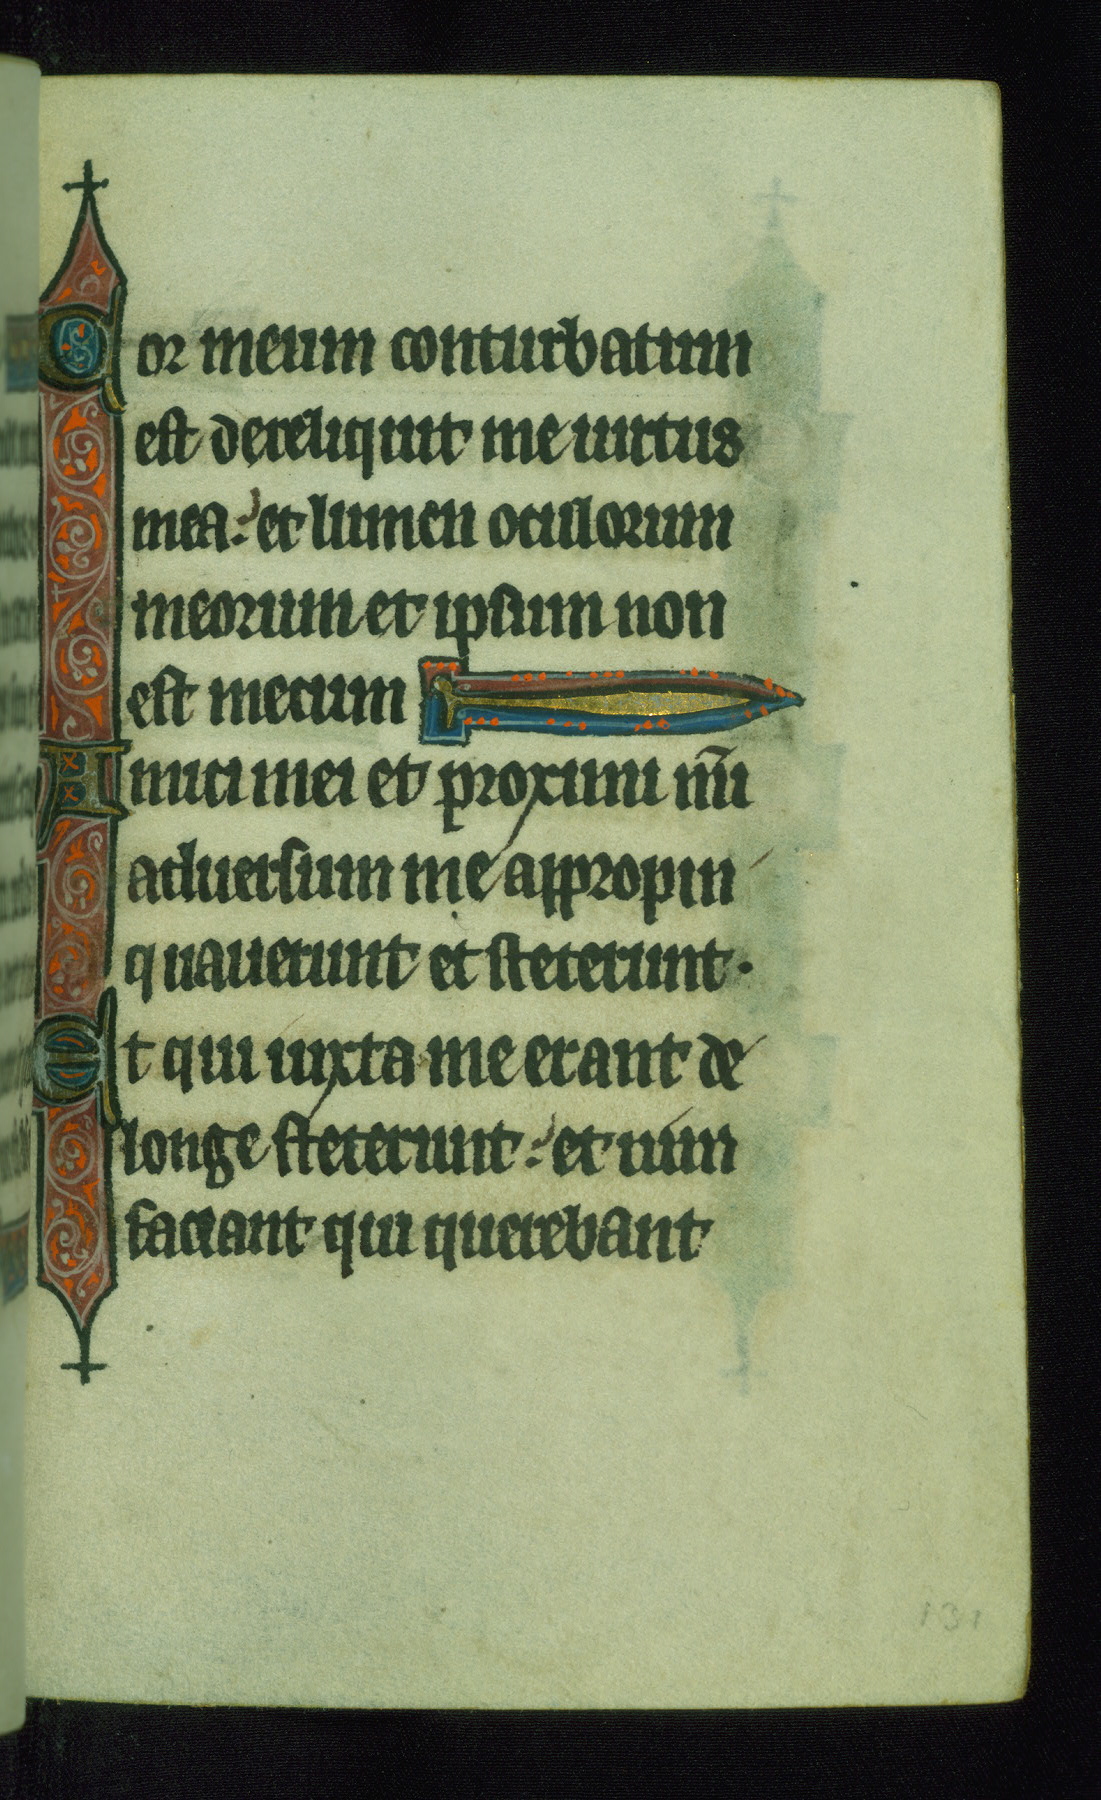 Cor meum conturbatum
est dereliquit me uirtus
mea: et lumen oculorum
meorum et ipsum non
est mecum
Amici mei et proximi mei
aduersum me appropin
quauerunt et steterunt.
Et qui iuxta me erant de
longe steterunt: et uim
faciant qui querebant
131